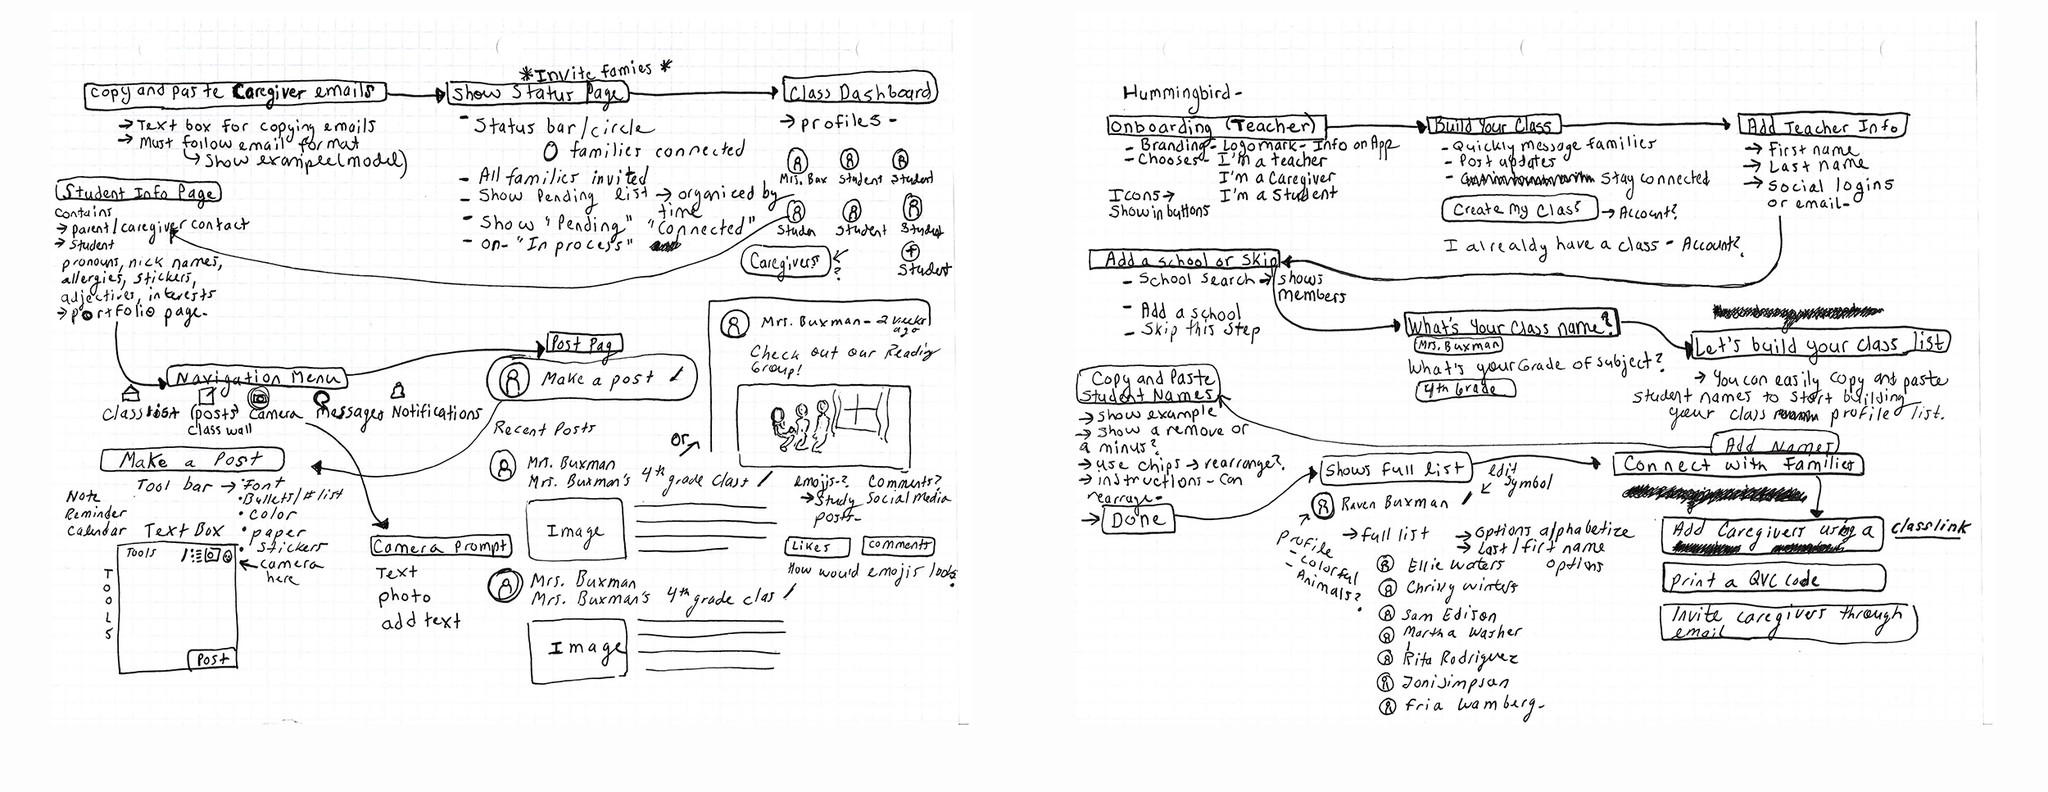 *Invite famies *
Copy and paste Caregiver emails
→ Text box for copying emails
→ Must follow email format
↳ Show example(model)
Show Status Page
- Status bar/circle
0 families connected
- All families invited
- Show Pending list → organized by time
- Show "Pending" "Connected"
- on- "In process"
Class Dashboard
→ profiles -
Mrs. Bax Student Student
Studen Student Student
Caregivers
?
+
Student
Student Info Page
Contains
→ parent/caregiver contact
→ Student
pronouns, nick names,
allergies, stickers,
adjectives, interests
→ portfolio page-
Navigation Menu
Class list (posts) Camera Messages Notifications
Class wall
Post Pag
Make a post
Recent Posts
Mrs. Buxman
Mrs. Buxman's 4th grade class
Image
Mrs. Buxman
Mrs. Buxman's 4th grade clas
Image
or
Mrs. Buxman - 2 weeks ago
Check out our Reading
Group!
emojis-? Comments?
→ Study Social media
posts-
Likes Comments
How would emojis look?
Make a Post
Tool bar → Font
• Bullets/# list
• Color
• paper
• stickers
← camera
here
Note
Reminder
Calendar
Text Box
Tools
TOOLS
Post
Camera Prompt
Text
photo
add text
Hummingbird-
Onboarding (Teacher)
- Branding - Logomark - Info on App
- Chooses - I'm a teacher
I'm a Caregiver
I'm a Student
Icons →
Show in buttons
Build Your Class
- Quickly message families
- Post updates
- Stay connected
Create my Class → Account?
I alrealdy have a class - Account?
Add Teacher Info
→ First name
→ Last name
→ Social logins
or email-
Add a school or Skip
- School Search → Shows
members
- Add a school
- Skip this step
What's Your Class name?
Mrs. Buxman
What's your Grade of subject?
4th Grade
Let's build your class list
→ You can easily copy and paste
student names to start building
your class profile list.
Add Names
Copy and Paste
Student Names
→ Show example
→ Show a remove or
a minus?
→ use chips → rearrange?
→ instructions - Can
rearrage-
→ Done
Shows full list
edit
symbol
Raven Buxman
Profile
- Colorful
- Animals?
→ full list
→ Options alphabetize
→ Last/first name
options
Ellie Waters
Chrissy winters
Sam Edison
Martha Washer
Rita Rodriguez
Joni Simpson
Fria Wamberg-
Connect with Families
Add Caregivers using a classlink
print a QVC code
Invite caregivers through
email